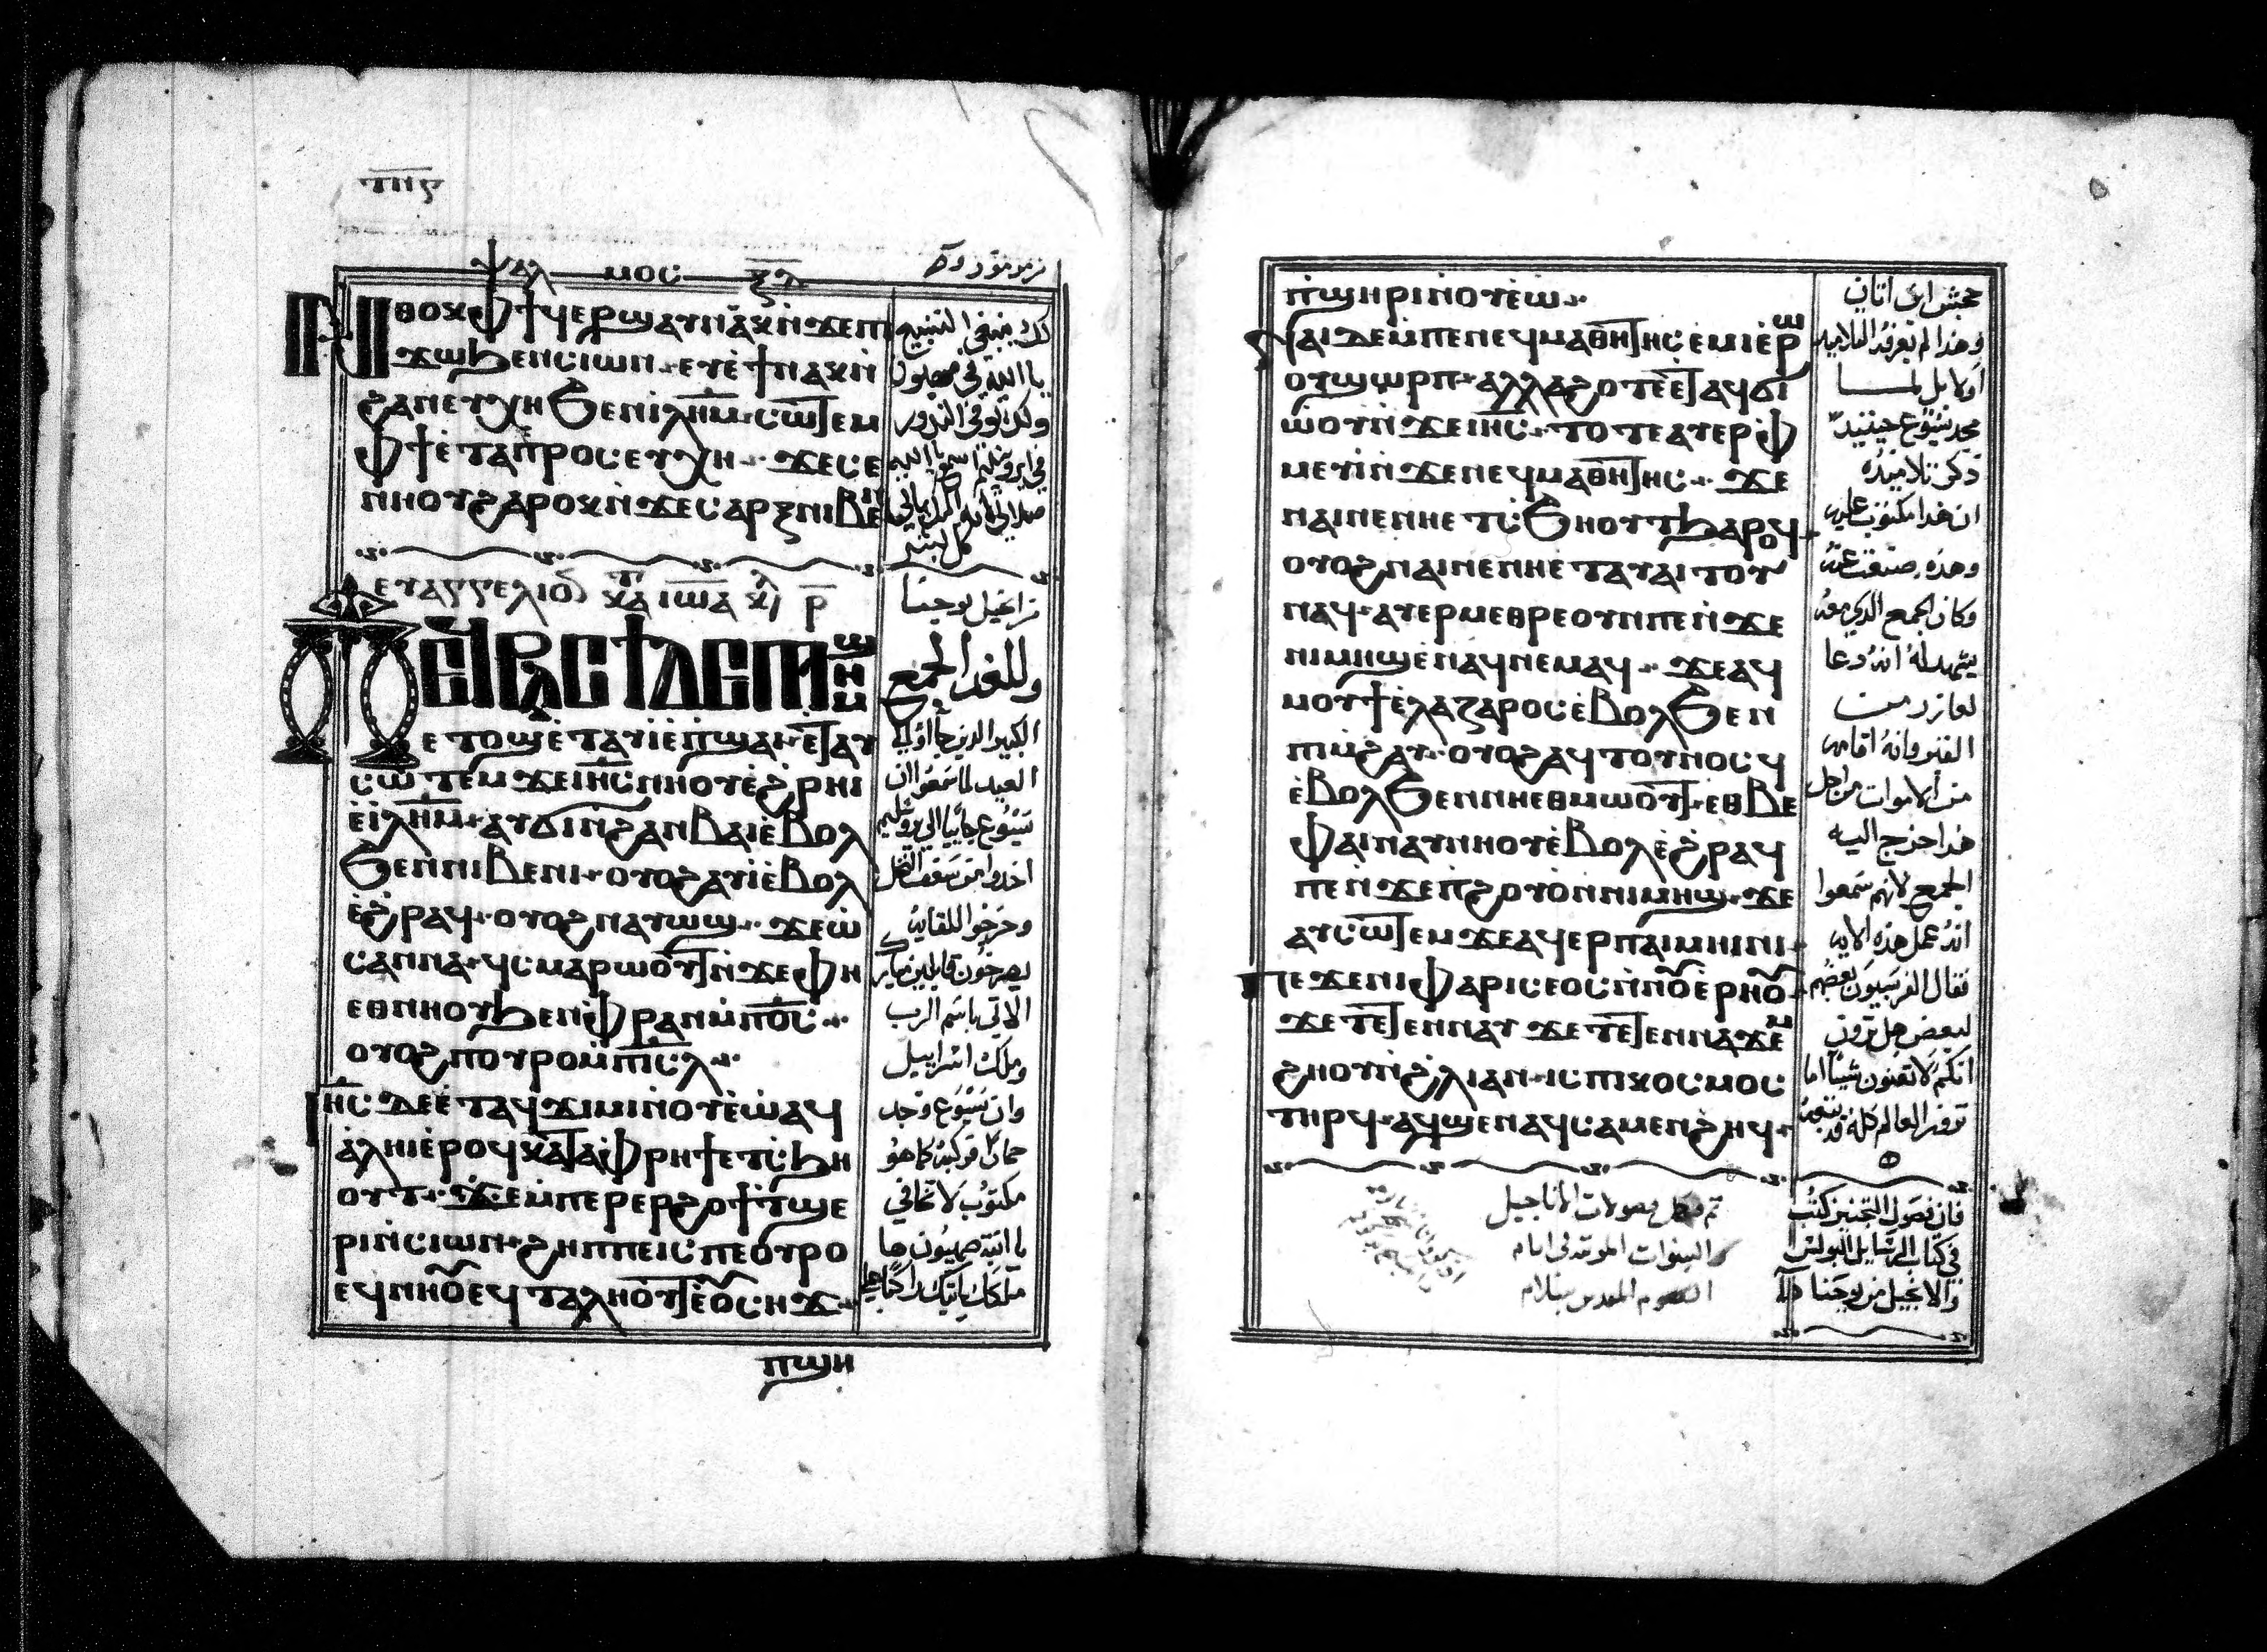 ⲯⲁⲗ ⲙⲟⲥ ⲝⲇ
ⲛⲑⲟⲕ ⲫϯ ϥⲉⲣϣⲁⲩ ⲛⲁⲕ ⲛ̀ϫⲉ ⲡⲓ
ϫⲱ ϧⲉⲛ ⲥⲓⲱⲛ ⲉⲩⲉ̀ϯ ⲛⲁⲕ ⲛ̀
ϩⲁⲛⲉⲩⲭⲏ ϧⲉⲛ ⲓⲗ̅ⲏ̅ⲙ̅ ⲥⲱⲧⲉⲙ
ⲫϯ ⲉ̀ⲧⲁⲡⲣⲟⲥⲉⲩⲭⲏ ϫⲉ ⲥⲉ
ⲛⲏⲟⲩ ϩⲁⲣⲟⲕ ⲛ̀ϫⲉ ⲥⲁⲣⲝ ⲛⲓⲃⲉⲛ
ⲉⲩⲁⲅⲅⲉⲗⲓⲟⲛ ⲕⲁⲧⲁ ⲓⲱⲁ
ⲡⲉϥⲣⲁⲥϯ ⲇⲉ ⲡⲓⲙⲏϣ
ⲉⲧⲟϣ ⲉ̀ⲧⲁⲩⲓ̀ ⲉ̀ⲡϣⲁⲓ ⲉ̀ⲧⲁⲩ
ⲥⲱⲧⲉⲙ ϫⲉ ⲓⲏ̅ⲥ̅ ⲛⲏⲟⲩ ⲉ̀ϩ̀ⲣⲏⲓ
ⲉ̀ⲓⲗ̅ⲏ̅ⲙ̅ ⲁⲩϭⲓ ⲛ̀ϩⲁⲛⲃⲁⲓ ⲉ̀ⲃⲟⲗ
ϧⲉⲛ ⲛⲓⲃⲉⲛⲓ ⲟⲩⲟϩ ⲁⲩⲓ̀ ⲉ̀ⲃⲟⲗ
ⲉ̀ϩ̀ⲣⲁϥ ⲟⲩⲟϩ ⲛⲁⲩⲱϣ ϫⲉ ⲱ̀
ⲥⲁⲛⲛⲁ ϥⲥⲙⲁⲣⲱⲟⲩⲧ ⲛ̀ϫⲉ ⲫⲏ
ⲉⲑⲛⲏⲟⲩ ϧⲉⲛ ⲫⲣⲁⲛ ⲙ̀ⲡⲟ̅ⲥ̅
ⲟⲩⲟϩ ⲡⲟⲩⲣⲟ ⲙ̀ⲡⲓⲥ̅ⲗ̅
ⲓⲏ̅ⲥ̅ ⲇⲉ ⲉ̀ⲧⲁϥϫⲓⲙⲓ ⲛ̀ⲟⲩⲉ̀ⲱ̀ ⲁϥ
ⲁ̀ⲗⲏⲓ ⲉ̀ⲣⲟϥ ⲕⲁⲧⲁ ⲫⲣⲏϯ ⲉⲧⲥϧⲏ
ⲟⲩⲧ ϫⲉ ⲙ̀ⲡⲉⲣⲉⲣϩⲟϯ ⲧϣⲉ
ⲣⲓ ⲛ̀ⲥⲓⲱⲛ ϩⲏⲡⲡⲉ ⲓⲥ ⲡⲉⲟⲩⲣⲟ
ⲉϥⲛⲏⲟⲩ ⲉϥⲧⲁⲗⲏⲟⲩⲧ ⲉ̀ⲟⲩⲥⲏϫ
ⲡϣⲏ
لك ينبغي التسبيح
يا الله في صهيون
كل بشر
من انجيل يوحنا
وللغد الجمع
الكبير الذين جاؤا الى
العيد لما سمعوا ان
يسوع جائيا الى يروشليم
اخذوا من سعف النخل
وخرجوا للقايه
يصرخون قايلين مبارك
الاتي باسم الرب
وملك اسراييل
وان يسوع وجد
حمارا فركبه كما هو
مكتوب لا تخافي
يا ابنة صهيون ها
ملكك ياتيك راكبا على
ⲡ̀ϣⲏⲣⲓ ⲛ̀ⲟⲩⲉ̀ⲱ
ⲛⲁⲓ ⲇⲉ ⲙ̀ⲡⲉ ⲛⲉϥⲙⲁⲑⲏⲧⲏⲥ ⲉ̀ⲙⲓ ⲉ̀ⲣⲱ
ⲟⲩ ⲛ̀ϣⲱⲣⲡ ⲁⲗⲗⲁ ϩⲟⲧⲉ ⲉ̀ⲧⲁϥϭⲓ
ⲱ̀ⲟⲩ ⲛ̀ϫⲉ ⲓⲏ̅ⲥ̅ ⲧⲟⲧⲉ ⲁⲩⲉⲣⲫ
ⲙⲉⲩⲓ̀ ⲛ̀ϫⲉ ⲛⲉϥⲙⲁⲑⲏⲧⲏⲥ ϫⲉ
ⲛⲁⲓ ⲛⲉ ⲛⲏ ⲉⲧⲥϧⲏⲟⲩⲧ ϧⲁⲣⲟϥ
ⲟⲩⲟϩ ⲛⲁⲓ ⲛⲉ ⲛⲏ ⲉⲧⲁⲩⲁⲓⲧⲟⲩ
ⲛⲁϥ ⲁⲩⲉⲣⲙⲉⲑⲣⲉ ⲟⲩⲛ ⲡⲉ ⲛ̀ϫⲉ
ⲡⲓⲙⲏϣ ⲉ̀ⲛⲁϥⲛⲉⲙⲁϥ ϫⲉ ⲁϥ
ⲙⲟⲩϯ ⲉ̀ⲗⲁⲍⲁⲣⲟⲥ ⲉ̀ⲃⲟⲗ ϧⲉⲛ
ⲡⲓⲙ̀ϩⲁⲩ ⲟⲩⲟϩ ⲁϥⲧⲟⲩⲛⲟⲥϥ
ⲉ̀ⲃⲟⲗ ϧⲉⲛ ⲛⲏⲉⲑⲙⲱⲟⲩⲧ ⲉⲑⲃⲉ
ⲫⲁⲓ ⲛⲁⲩⲛⲏⲟⲩ ⲉ̀ⲃⲟⲗ ⲉ̀ϩ̀ⲣⲁϥ
ⲡⲉ ⲛ̀ϫⲉ ⲡ̀ϩⲟⲩⲟ̀ ⲛ̀ⲛⲓⲙⲏϣ ϫⲉ
ⲁⲩⲥⲱⲧⲉⲙ ϫⲉ ⲁϥⲉⲣ ⲡⲁⲓⲙⲏⲓⲛⲓ
ⲡⲉϫⲉ ⲛⲓⲫⲁⲣⲓⲥⲉⲟⲥ ⲛ̀ⲛⲟⲩⲉ̀ⲣⲏⲟⲩ
ϫⲉ ⲧⲉⲧⲉⲛⲛⲁⲩ ϫⲉ ⲧⲉⲧⲉⲛⲛⲁϫⲉⲙ
ϩⲏⲟⲩ ⲛ̀ϩ̀ⲗⲓ ⲁⲛ ⲓⲥ ⲡⲓⲕⲟⲥⲙⲟⲥ
ⲧⲏⲣϥ ⲁϥϣⲉ ⲛⲁϥ ⲥⲁⲙⲉⲛϩⲏϥ
جحش ابن اتان
وهذا لم تعرفه التلاميذ
اولا بل لما
مجد يسوع حينيذ
ذكر تلاميذه
ان هذا مكتوب عليه
وهذه صنعت عنه
وكان الجمع الذي معه
يشهد له انه دعا
لعازر من
القبر وانه اقامه
من الاموات من اجل
هذا خرج اليه
الجمع لانهم سمعوا
انه عمل هذه الايه
فقال الفريسيون بعضهم
لبعض هل ترون
انكم لا تغنون شيئا اما
ترون العالم كله قد تبعه
فان فصول التجنيز كتبت
في كتاب الرسايل البولس
والانجيل من يوحنا